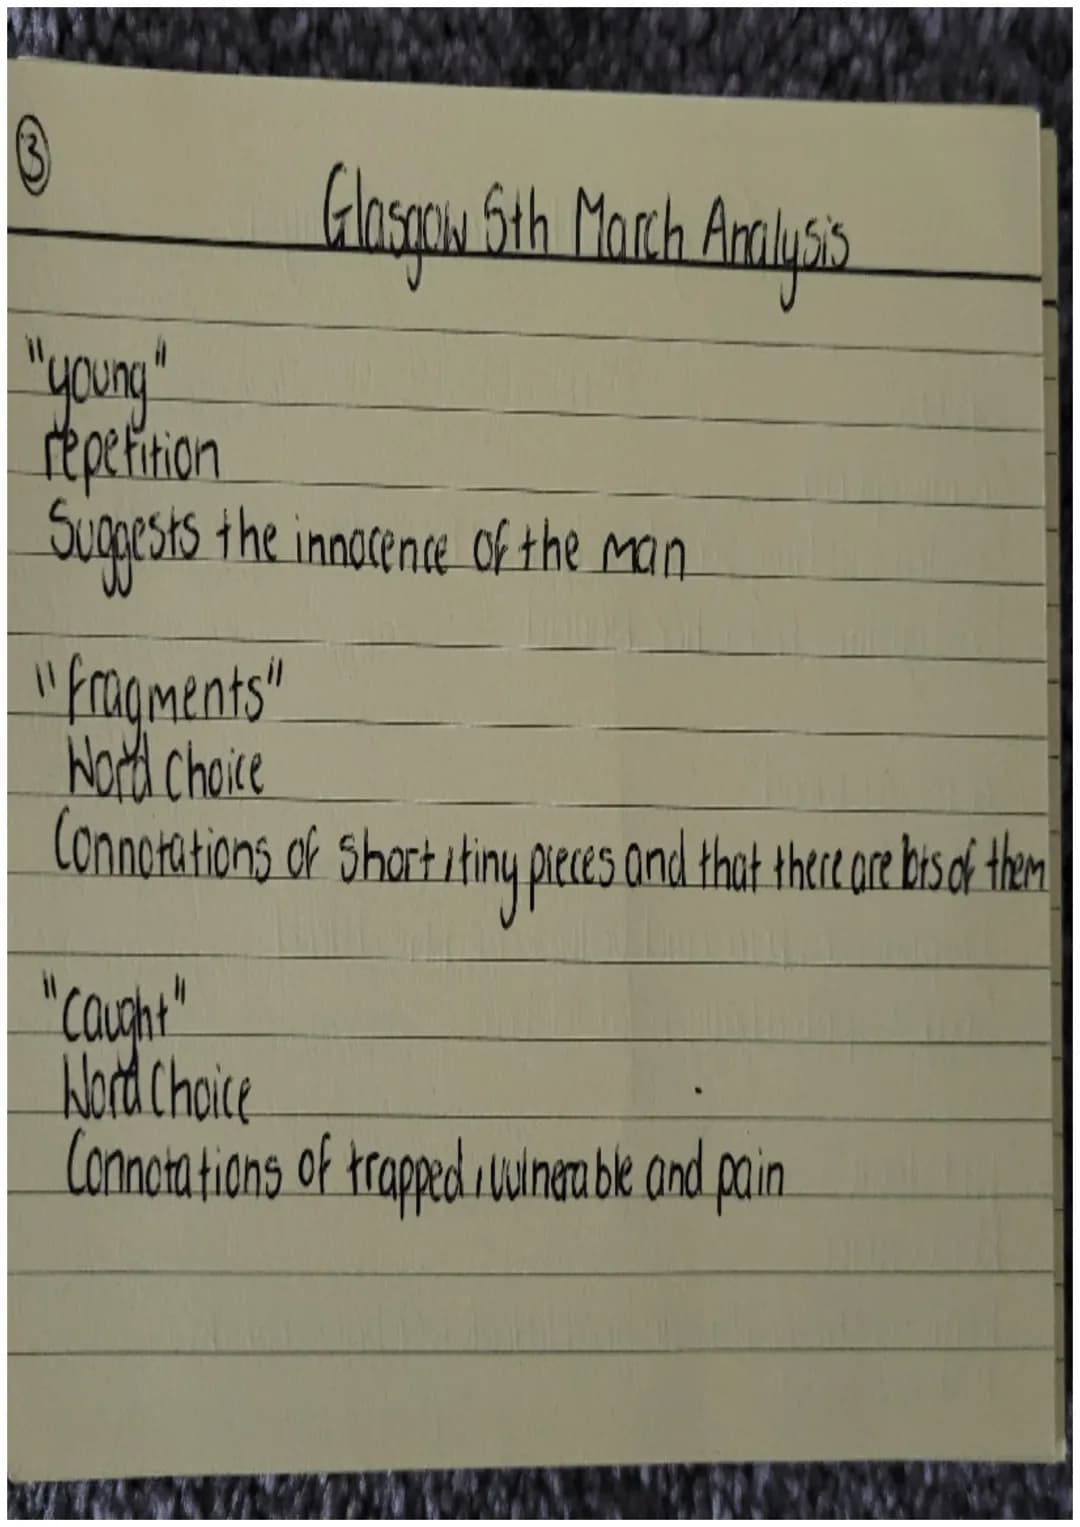 3
Glasgow 5th March Analysis
"young"
repetition
Suggests the innocence of the man
"fragments"
Word choice
Connotations of short, tiny pieces and that there are lots of them
"caught"
Word Choice
Connotations of trapped, vulnerable and pain